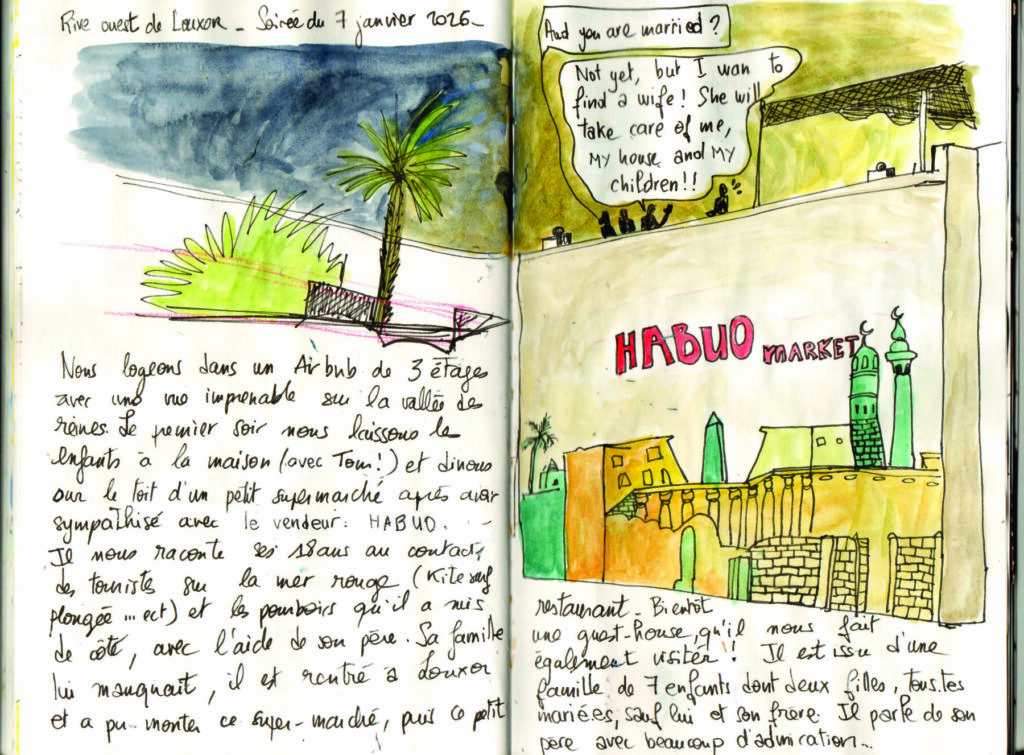 Rive ouest de Louxor - Soirée du 7 janvier 2026 -
Nous logeons dans un Airbnb de 3 étages
avec une vue imprenable sur la vallée des
reines. Le premier soir nous laissons les
enfants à la maison (avec Tom!) et dinons
sur le toit d'un petit supermarché après avoir
sympathisé avec le vendeur: HABUO.
Il nous raconte ses 18 ans au contact
des touristes sur la mer rouge (Kite surf
plongée ... ect) et les pourboirs qu'il a mis
de côté, avec l'aide de son père. Sa famille
lui manquait, il est rentré à Louxor
et a pu monter ce super-marché, puis ce petit
And you are married?
Not yet, but I wan to
find a wife! She will
take care of me,
MY house and MY
children!!
HABUO MARKET
restaurant - Bientôt
une guest-house, qu'il nous fait
également visiter! Il est issu d'une
famille de 7 enfants dont deux filles, tous.tes
mariées, sauf lui et son frère. Il parle de son
père avec beaucoup d'admiration...